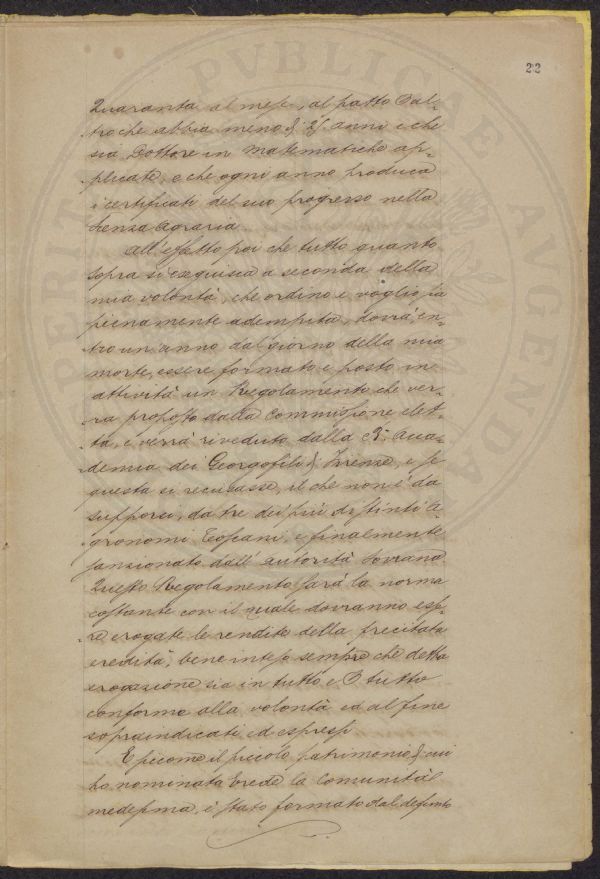 22
Quaranta al mese, al patto d'al-
tro che abbia meno di 25 anni e che
sia Dottore in Matematiche ap-
plicate, e che ogni anno produca
i certificati del suo progresso nella
Scienza Agraria.
All'effetto poi che tutto quanto
sopra si eseguisca a seconda della
mia volontà, che ordino e voglio sia
pienamente adempita, dovrà, en-
tro un anno dal giorno della mia
morte, essere formato e posto in
attività un Regolamento che ver-
rà proposto dalla Commissione elet-
ta, e verrà riveduto dalla R. Acca-
demia dei Georgofili di Firenze, e se
questa si recusasse, il che non è da
supporsi, da tre dei più distinti a-
gronomi Toscani, e finalmente
sanzionato dall'autorità Sovrana
Questo Regolamento sarà la norma
costante con il quale dovranno ess-
re erogate le rendite della precitata
eredità, bene inteso sempre che detta
erogazione sia in tutto e P tutto
conforme alla volontà ed al fine
sopraindicati ed espressi
E siccome il piccolo patrimonio di cui
ho nominata Erede la Comunità
medesima, è stato formato dal defunto
PERITA PVBLICAE AVGENDAE